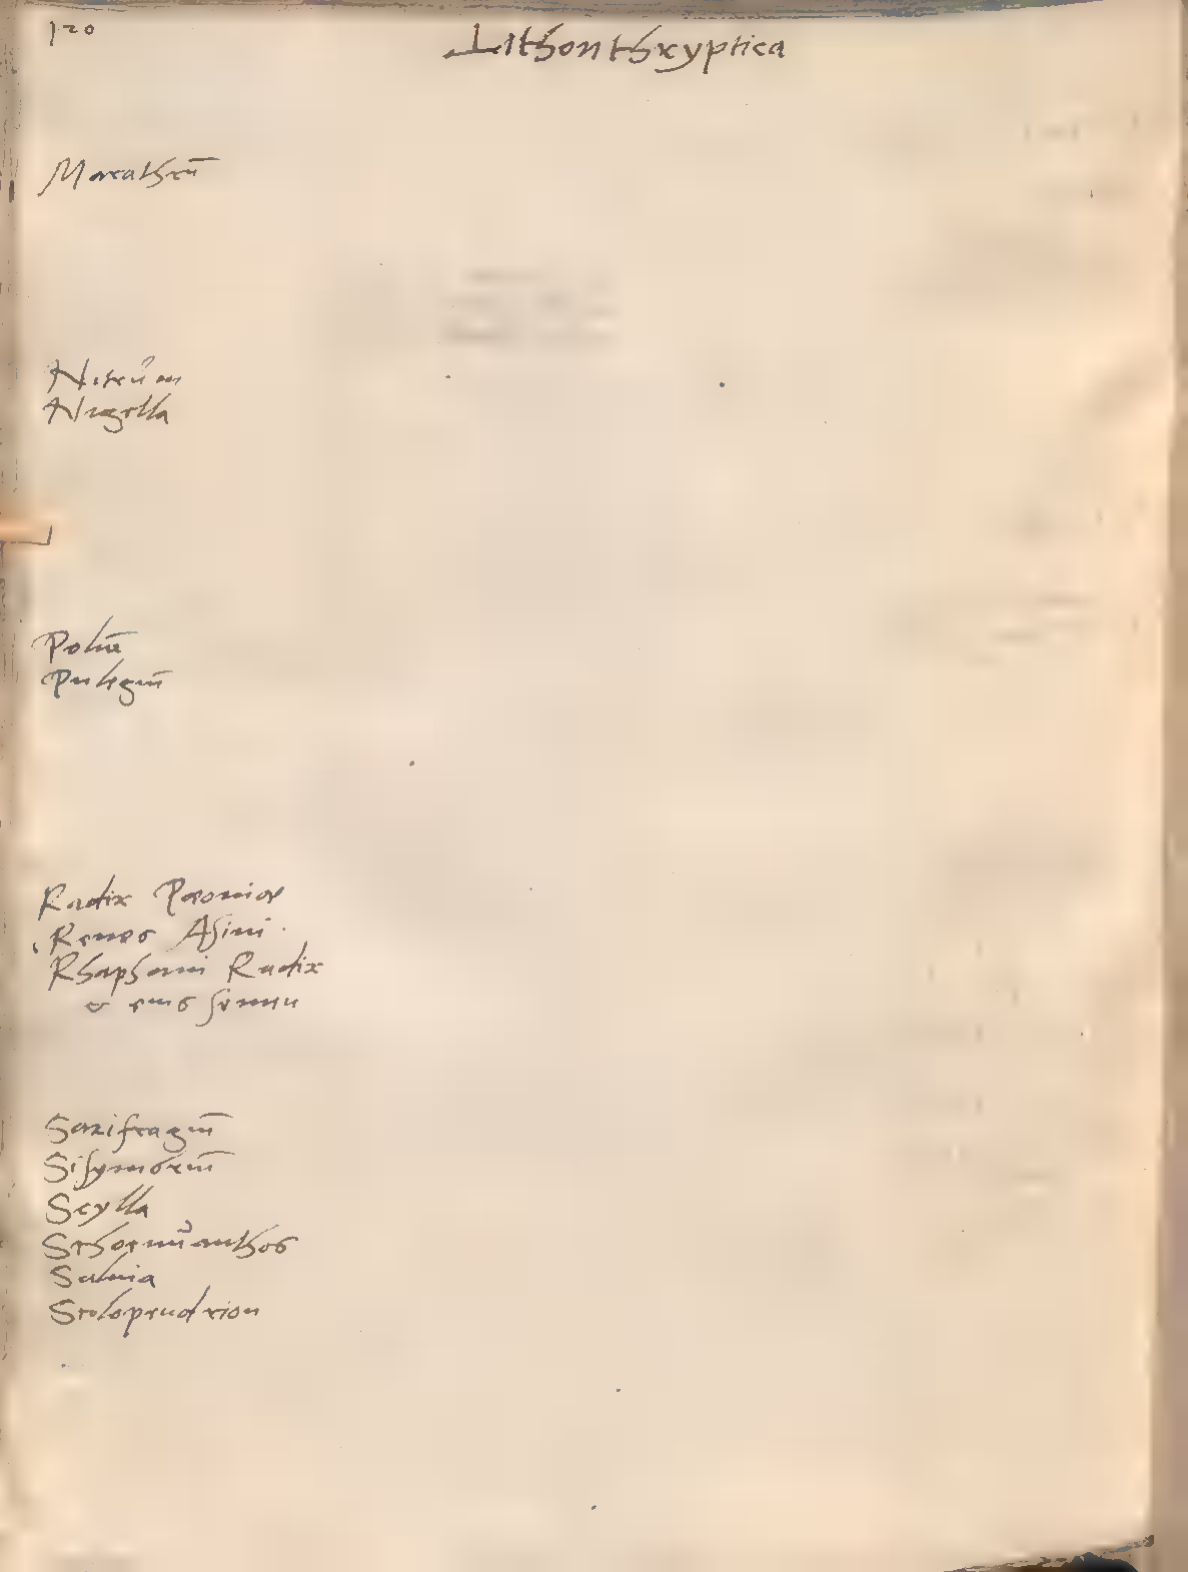 120
Lithonthryptica
Marathrū
Nitrūm
Nigella
Poliū
Pulegiū
Radix Pæoniæ
Renes Asini
Rhaphani Radix
& eius semen
Saxifragiū
Sisymbriū
Scylla
Schoenūanthos
Salvia
Scolopendrion